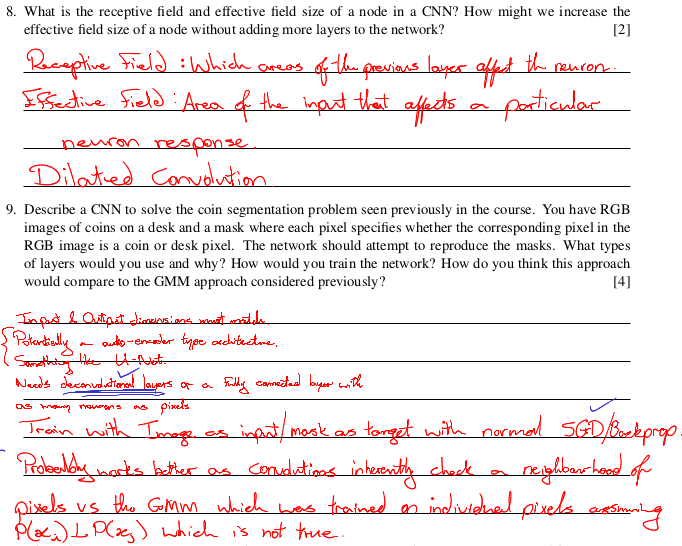 8. What is the receptive field and effective field size of a node in a CNN? How might we increase the
effective field size of a node without adding more layers to the network? [2]
Receptive Field : Which areas of the previous layer affect the neuron.
Effective Field : Area of the input that affects a particular
neuron response.
Dilated Convolution
9. Describe a CNN to solve the coin segmentation problem seen previously in the course. You have RGB
images of coins on a desk and a mask where each pixel specifies whether the corresponding pixel in the
RGB image is a coin or desk pixel. The network should attempt to reproduce the masks. What types
of layers would you use and why? How would you train the network? How do you think this approach
would compare to the GMM approach considered previously? [4]
Input & Output dimensions must match.
Potentially a auto-encoder type architecture.
Something like U-Net.
Needs deconvolutional layers or a fully connected layer with
as many neurons as pixels
Train with Image as input/mask as target with normal SGD/Backprop.
Probably works better as convolutions inherently check a neighbourhood of
pixels vs the GMM which was trained on individual pixels assuming
P(xᵢ) ⊥ P(xⱼ) which is not true.